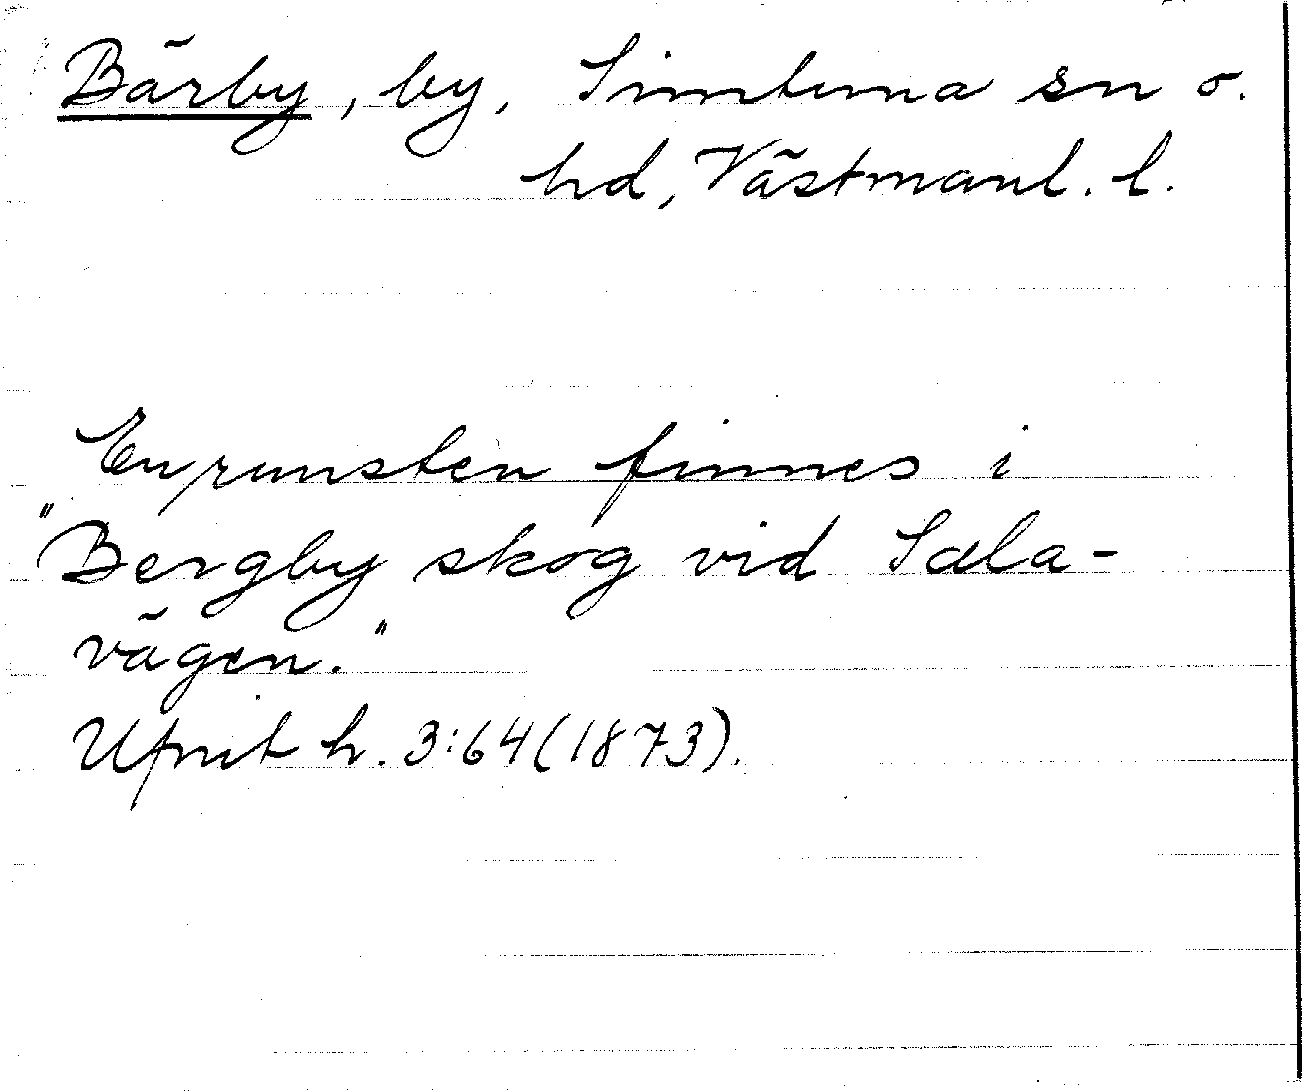 Bärby, by, Simtuna sn o.
hd, Västmanl. l.
En runsten finnes i
"Bergby skog vid Sala-
vägen."
Ufmt h. 3:64 (1873).